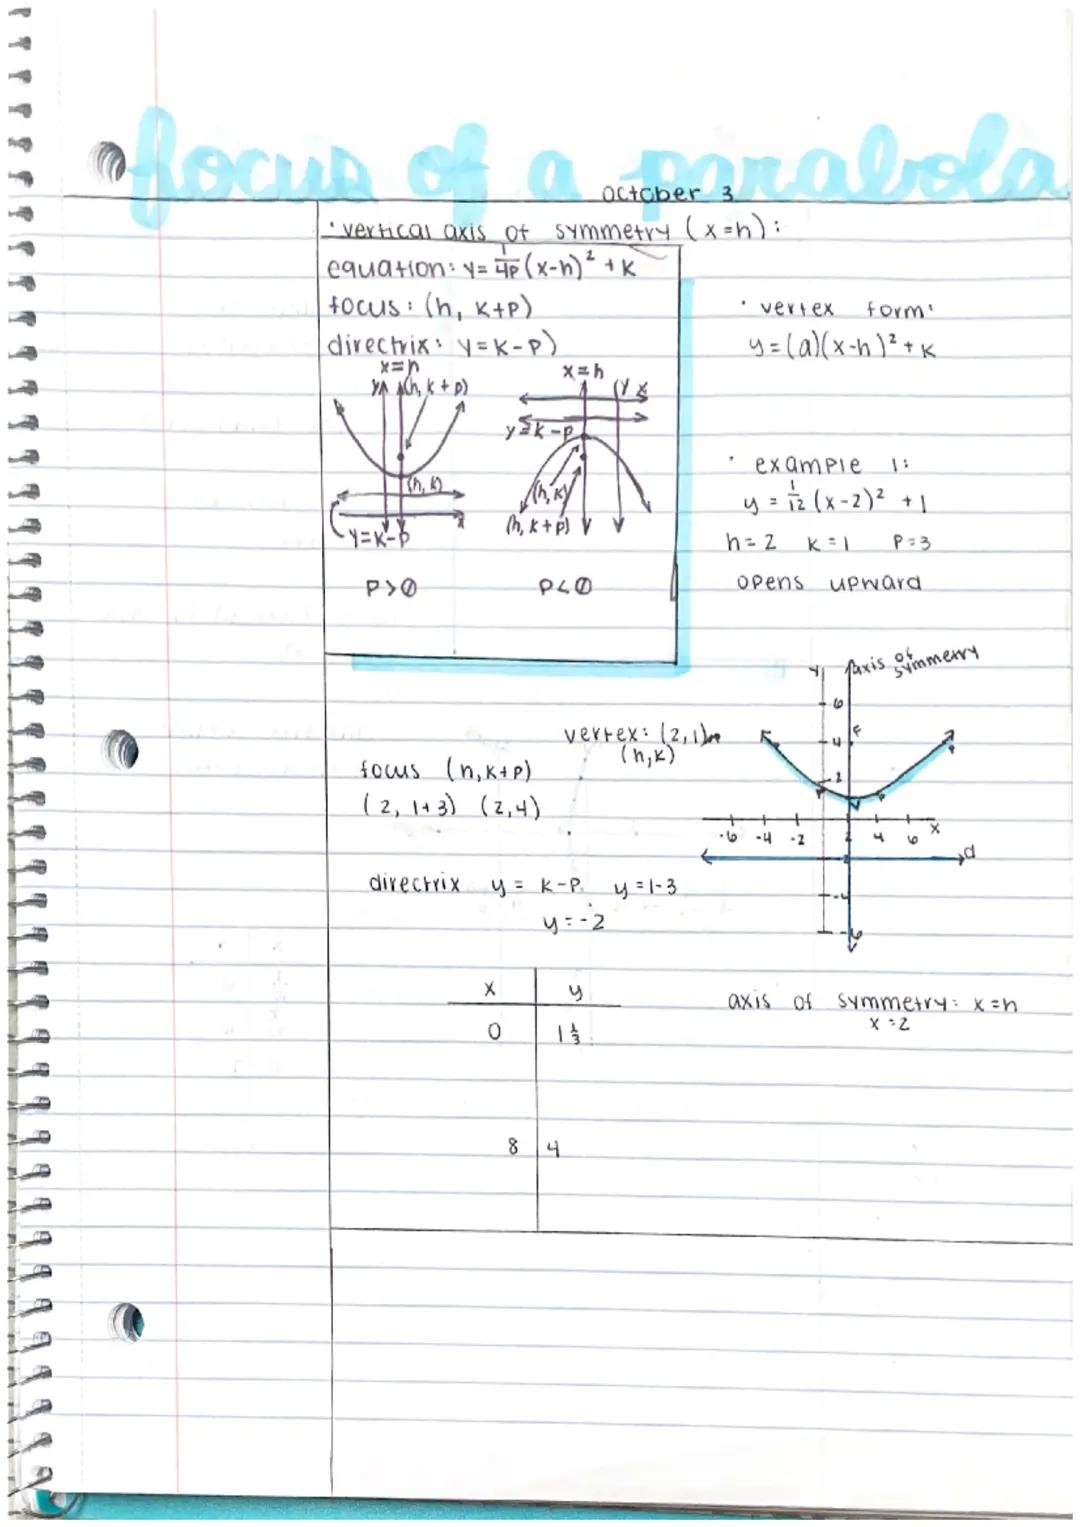 focus of a parabola
october 3
· vertical axis of symmetry (x=h):
equation: y= 1/4p (x-h)² + k
focus: (h, k+p)
directrix: y=k-p)
x=h
y
(h, k+p)
(h, k)
x
y=k-p
p>0
x=h
y
x
y=k-p
(h, k)
(h, k+p)
p<0
· vertex form:
y=(a)(x-h)² + k
· example 1:
y = 1/12 (x-2)² + 1
h=2 k=1 p=3
opens upward
vertex: (2,1)
(h,k)
focus (h, k+p)
(2, 1+3) (2,4)
directrix y = k-p y=1-3
y=-2
y axis of symmerry
6
4 F
2
V
-6 -4 -2 2 4 6 x
d
-4
-6
x y
0 1 1/3
8 4
axis of symmetry: x=h
x=2